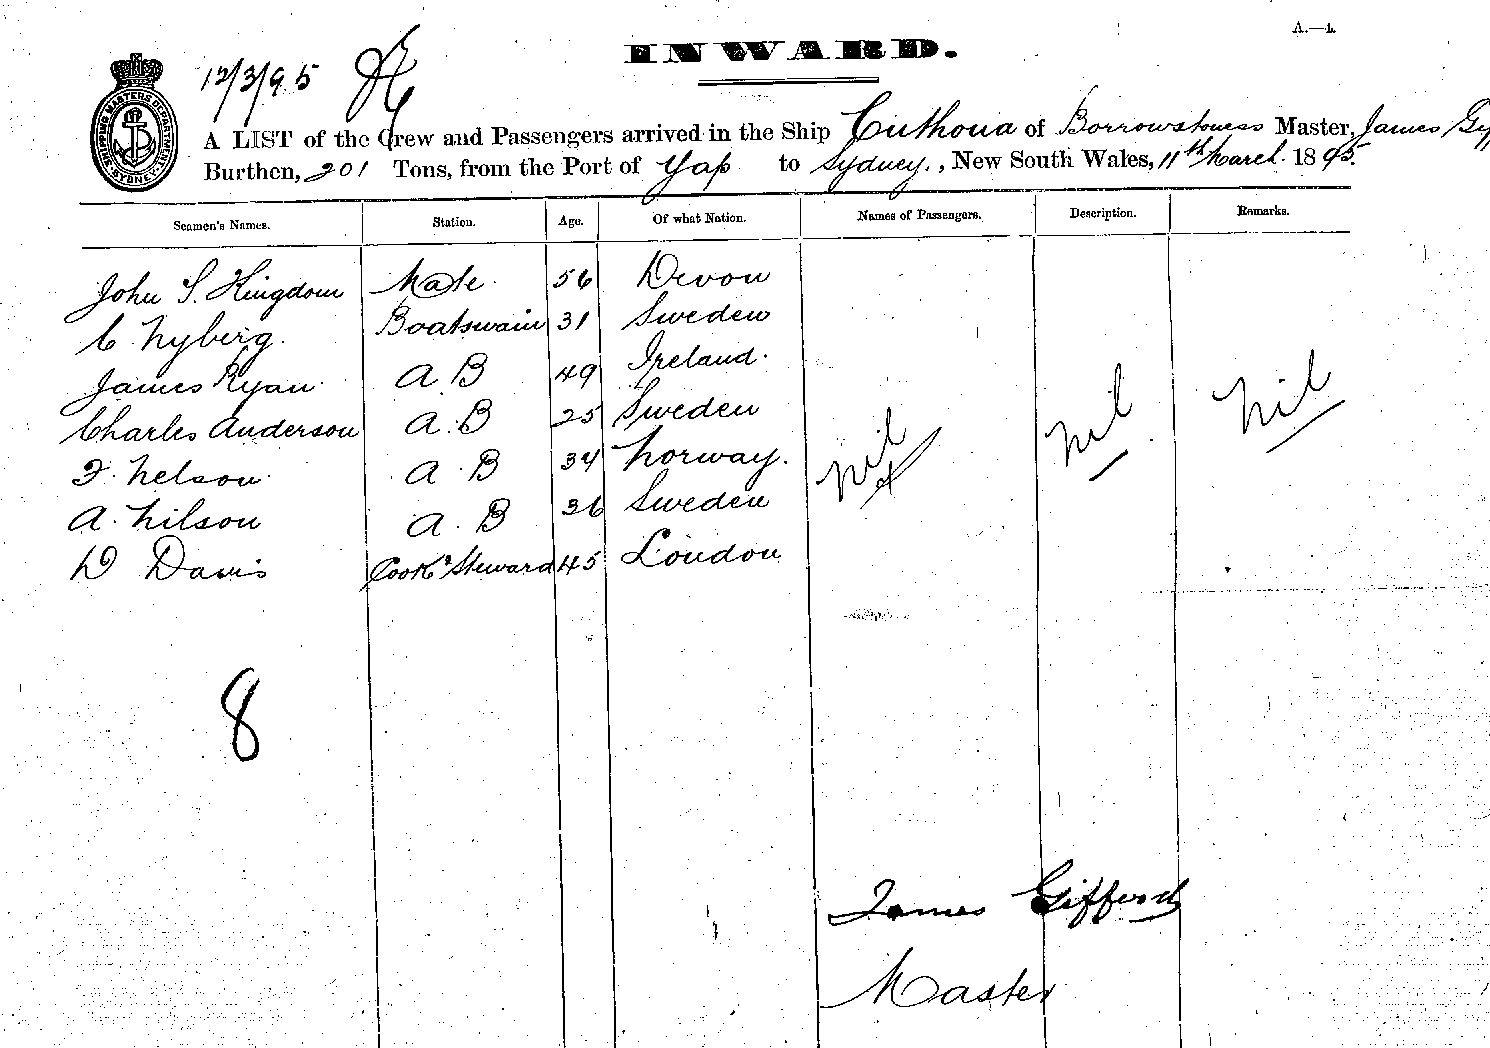 A.—1.
INWARD.
12/3/95
SHIPPING MASTERS DEPARTMENT SYDNEY
A LIST of the Crew and Passengers arrived in the Ship Cuthona of Borrowstoness Master, James
Burthen, 201 Tons, from the Port of Yap to Sydney, New South Wales, 11th March. 1895.
Seamen's Names. Station. Age. Of what Nation. Names of Passengers. Description. Remarks.
John S. Kingdom Mate. 56 Devon
C Nyberg. Boatswain 31 Sweden
James Ryan. A B 49 Ireland.
Charles Anderson A.B 25 Sweden
F. Nelson. A.B 34 Norway.
A. Nilson A.B 36 Sweden
D Davis Cook & Steward 45 London
nil nil nil
8
James Gifford
Master